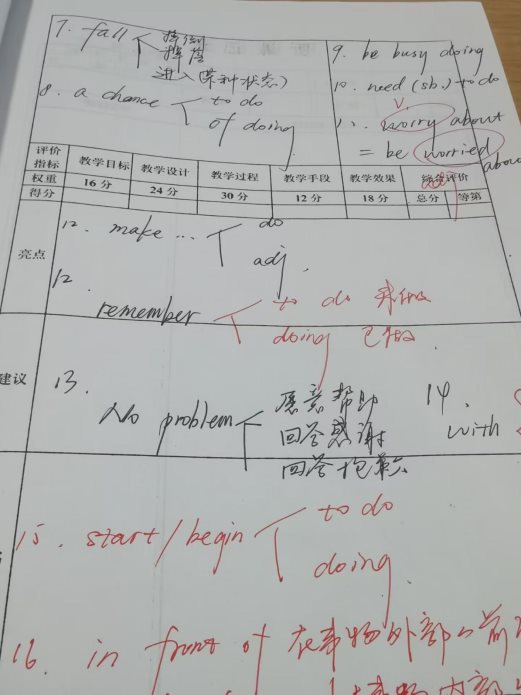 7. fall
摔倒
掉落
进入(某种状态)
8. a chance
to do
of doing
9. be busy doing
10. need (sb.) to do
v.
11. worry about
= be worried about
adj
评价指标 教学目标 教学设计 教学过程 教学手段 教学效果 综合评价
权重 16分 24分 30分 12分 18分 总分 等第
得分
亮点
12. make ...
do
adj.
12.
remember
to do 未做
doing 已做
建议
13.
No problem
愿意帮助
回答感谢
回答抱歉
14.
with
15. start/begin
to do
doing
16. in front of 在事物外部的前